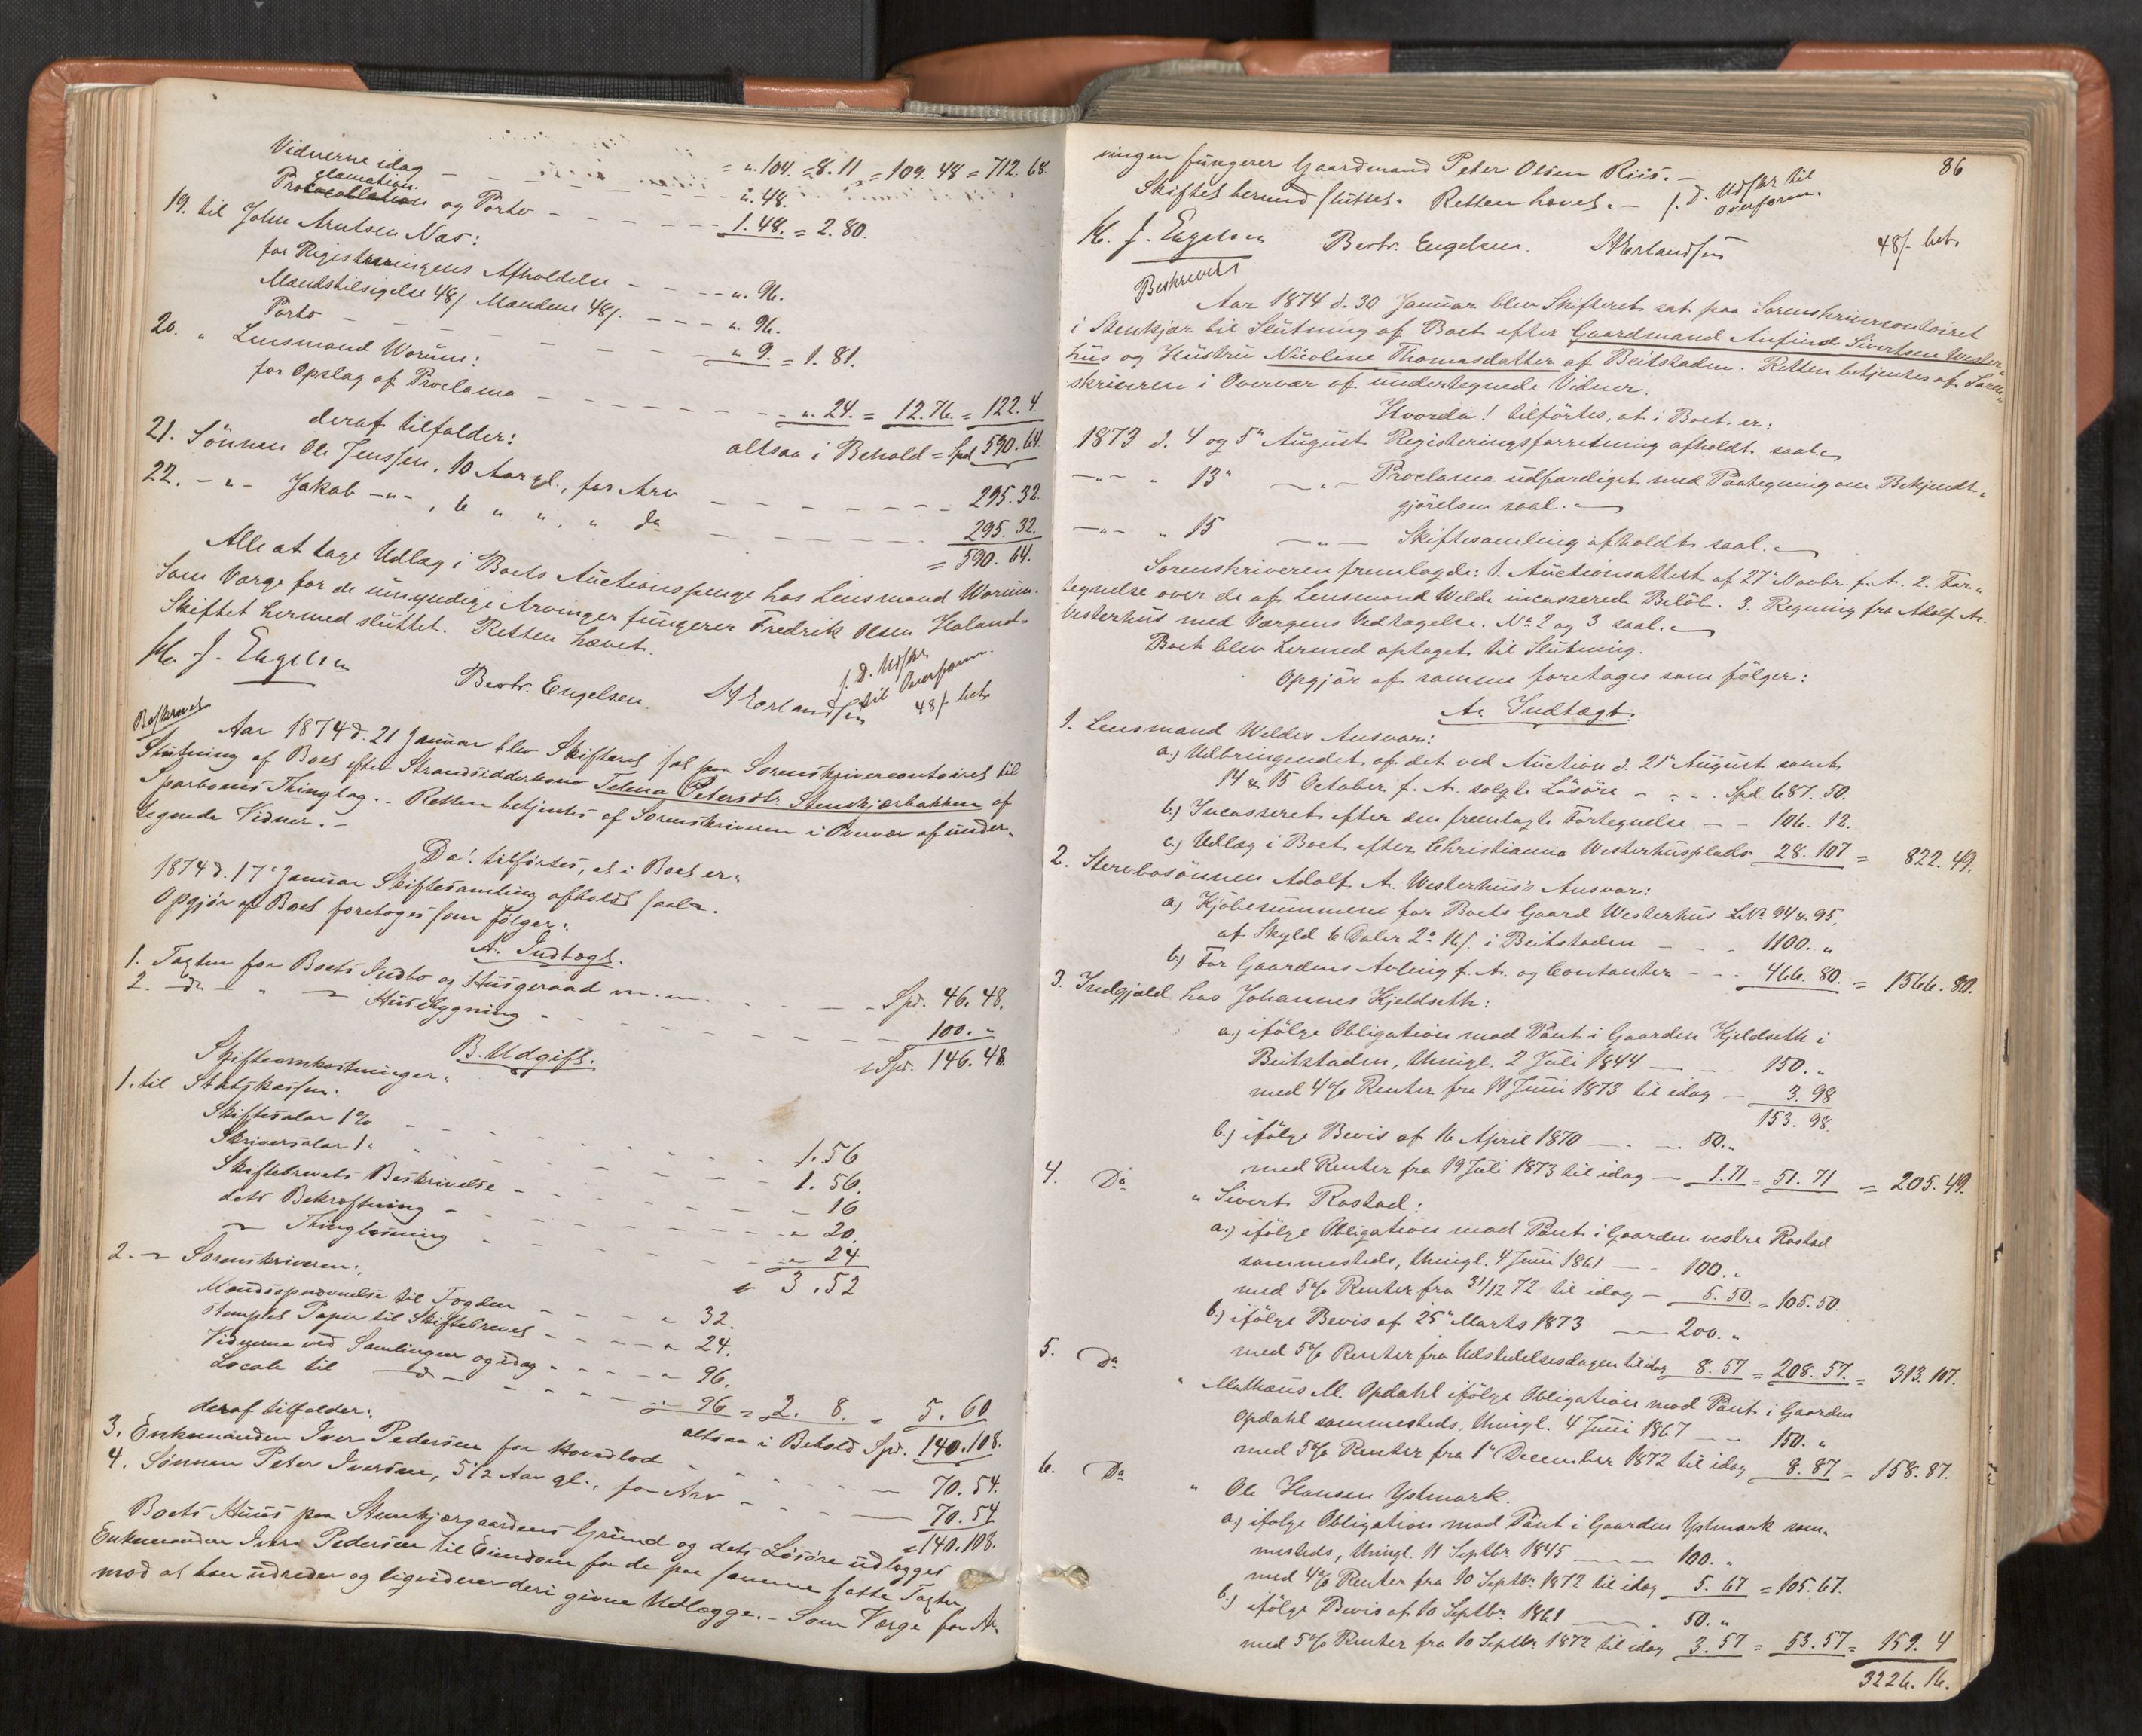 Vidnerne idag - - - - - - = „. 104. = 8. 11 = 109. 48 = 712. 68
Proclamation og Porto - - - - - - „. 48.
19. til John Arntsen Næs: 1. 48. = 2. 80.
for Registreringens Afholdelse - - - - „. 96.
Mandstilsigelse 48 s. Mændene 48 s. - - - „. 96.
Porto - - - - - - „ 9. = 1. 81.
20. „ Lensmand Worum:
for Opslag af Proclama - - - - - - „. 24. = 12. 76. = 122. 4
altsaa i Behold = Spd 590. 64.
deraf tilfalder:
21. Sönnen Ole Jenssen, 10 Aar gl., for Arv - - - - - 295. 32.
22. - „ - Jakob - „ -, 6 „ „, „ do - - - - - 295. 32.
= 590. 64.
Alle at tage Udlæg i Boets Auctionspenge hos Lensmand Worum.
Som Værge for de umyndige Arvinger fungerer Fredrik Olsen Haland.
Skiftet hermed sluttet. Retten hævet.
J. Engelsen Berh. Engelsen. Erlandsen
f. D. Udskr. til Overform. 48 s bet.
Beskrevet
Aar 1874 d. 21 Januar blev Skifteret sat paa Sorenskrivercontoiret til
Slutning af Boet efter Strandsidderkone Telena Petersdtr. Stenkjærbakken af
Sparboens Thinglag. - Retten betjentes af Sorenskriveren i Overvær af under-
tegnede Vidner. -
Da! tilførtes, at i Boet er:
1874 d. 17. Januar Skiftesamling afholdt saal.
Opgjør af Boet foretoges som følger:
A. Indtægt.
1. Taxten for Boets Indbo og Husgeraad m. m. - - - Spd. 46. 48.
2. - do - „ Husbygning - - - - - 100. „
Spd. 146. 48
B. Udgift.
Skifteomkostninger:
1. til Statskassen:
Skiftesalar 1 % - - - - - 1. 56
Skriversalar 1 „ - - - - - 1. 56.
Skiftebrevets Beskrivelse - - - - „ 16
dets Bekræftning - - - - - „ 20.
Thinglæsning - - - - - „ 24
3. 52
2. Sorenskriveren:
Mandsopnævnelse til Taxten - - - „ 32.
stemplet Papir til Skiftebrevet - - - „ 24.
Vidnerne ved Samlingen og idag - - - „ 96.
Locale til - do - - - - „ 96 = 2. 8. = 5. 60
altsaa i Behold Spd. 140. 108.
deraf tilfalder:
3. Enkemanden Iver Pedersen for Hovedlod - - - 70. 54.
4. Sønnen Peter Iversen, 5 1/2 Aar gl., for Arv - - 70. 54
= 140. 108.
Boets Huus paa Stenkjærgaardens Grund og dets Løsøre udlægges
Enkemanden Iver Pedersen til Eiendom for de paa samme satte Taxter
mod at han udreder og liqviderer deri givne Udlægge. - Som Værge for Ar-
86
vingen fungerer Gaardmand Peter Olsen Riis. -
Skiftet hermed sluttet. Retten hævet. - f. D. Udskr til Overform.
J. Engelsen Berh. Engelsen. Erlandsen 48 s. bet.
Beskrevet
Aar 1874 d. 30 Januar blev Skifteret sat paa Sorenskrivercontoiret
i Stenkjær til Slutning af Boet efter Gaardmand Anfind Sivertsen Wester-
hus og Hustru Nicoline Thomasdatter af Beitstaden. Retten betjentes af Soren-
skriveren i Overvær af undertegnede Vidner.
Hvorda! tilførtes, at i Boet er:
1873 d. 4 og 5te August Registeringsforretning afholdt saal.
- „ - „ 13 „ - „ - Proclama udfærdiget med Paategning om Bekjendt-
gjørelsen saal.
- „ - „ 15 - „ - Skiftesamling afholdt saal.
Sorenskriveren fremlagde: 1. Auctionsattest af 27 Novbr. f. A. 2. For-
tegnelse over de af Lensmand Welde incasserede Beløb. 3. Regning fra Adolf A.
Vesterhus med Værgens Vedtagelse. No 2 og 3 saal.
Boet blev hermed optaget til Slutning.
Opgjør af samme foretages som følger:
A. Indtægt.
1. Lensmand Weldes Ansvar:
a.) Udbringendet af det ved Auction d. 21 August samt
14 & 15 October f. A. solgte Løsøre - - - Spd. 687. 50.
b.) Incasseret efter den fremlagte Fortegnelse - - 106. 12.
c.) Udlæg i Boet efter Christianna Westerhusplads 28. 107 = 822. 49.
2. Stervbosønnen Adolf A. Westerhus's Ansvar:
a.) Kjøbesummen for Boets Gaard Westerhus L.No 94 & 95,
af Skyld 6 Daler 2 o 16 s. i Beitstaden - - - 1100. „
b.) For Gaardens Avling f. A. og Contanter - - - 466. 80. = 1566. 80.
3. Indgjæld hos Johannes Kjeldseth:
a.) ifølge Obligation mod Pant i Gaarden Kjeldseth i
Beitstaden, thingl. 2 Juli 1844 - - - 150. „
med 4 % Renter fra 11 Juni 1873 til idag - 3. 98
153. 98.
b.) ifølge Bevis af 16 April 1870 - - - 50. „
med Renter fra 19 Juli 1873 til idag - 1. 71 = 51. 71 = 205. 49.
4. Do „ Sivert Rostad:
a.) ifølge Obligation mod Pant i Gaarden vestre Rostad
sammesteds, thingl. 4 Juni 1861 - - 100. „
med 5 % Renter fra 31/12 72 til idag - 5. 50. = 105. 50.
b.) ifølge Bevis af 25 Marts 1873 - 200. „
med 5 % Renter fra Udstedelsesdagen til idag 8. 57 = 208. 57. = 313. 107.
5. Do „ Mathæus M. Opdahl ifølge Obligation mod Pant i Gaarden
Opdahl sammesteds, thingl. 4 Juni 1867 - - 150. „
med 5 % Renter fra 1 December 1872 til idag 8. 87 = 158. 87.
6. Do „ Ole Hansen Ystmark.
a.) ifølge Obligation mod Pant i Gaarden Ystmark sam-
mesteds, thingl. 11 Septbr 1845 - - - 100. „
med 4 % Renter fra 10 Septbr. 1872 til idag 5. 67 = 105. 67.
b.) ifølge Bevis af 10 Septbr 1861 - - - 50. „
med 5 % Renter fra 10 Septbr 1872 til idag 3. 57 = 53. 57 = 159. 4
3226. 16.